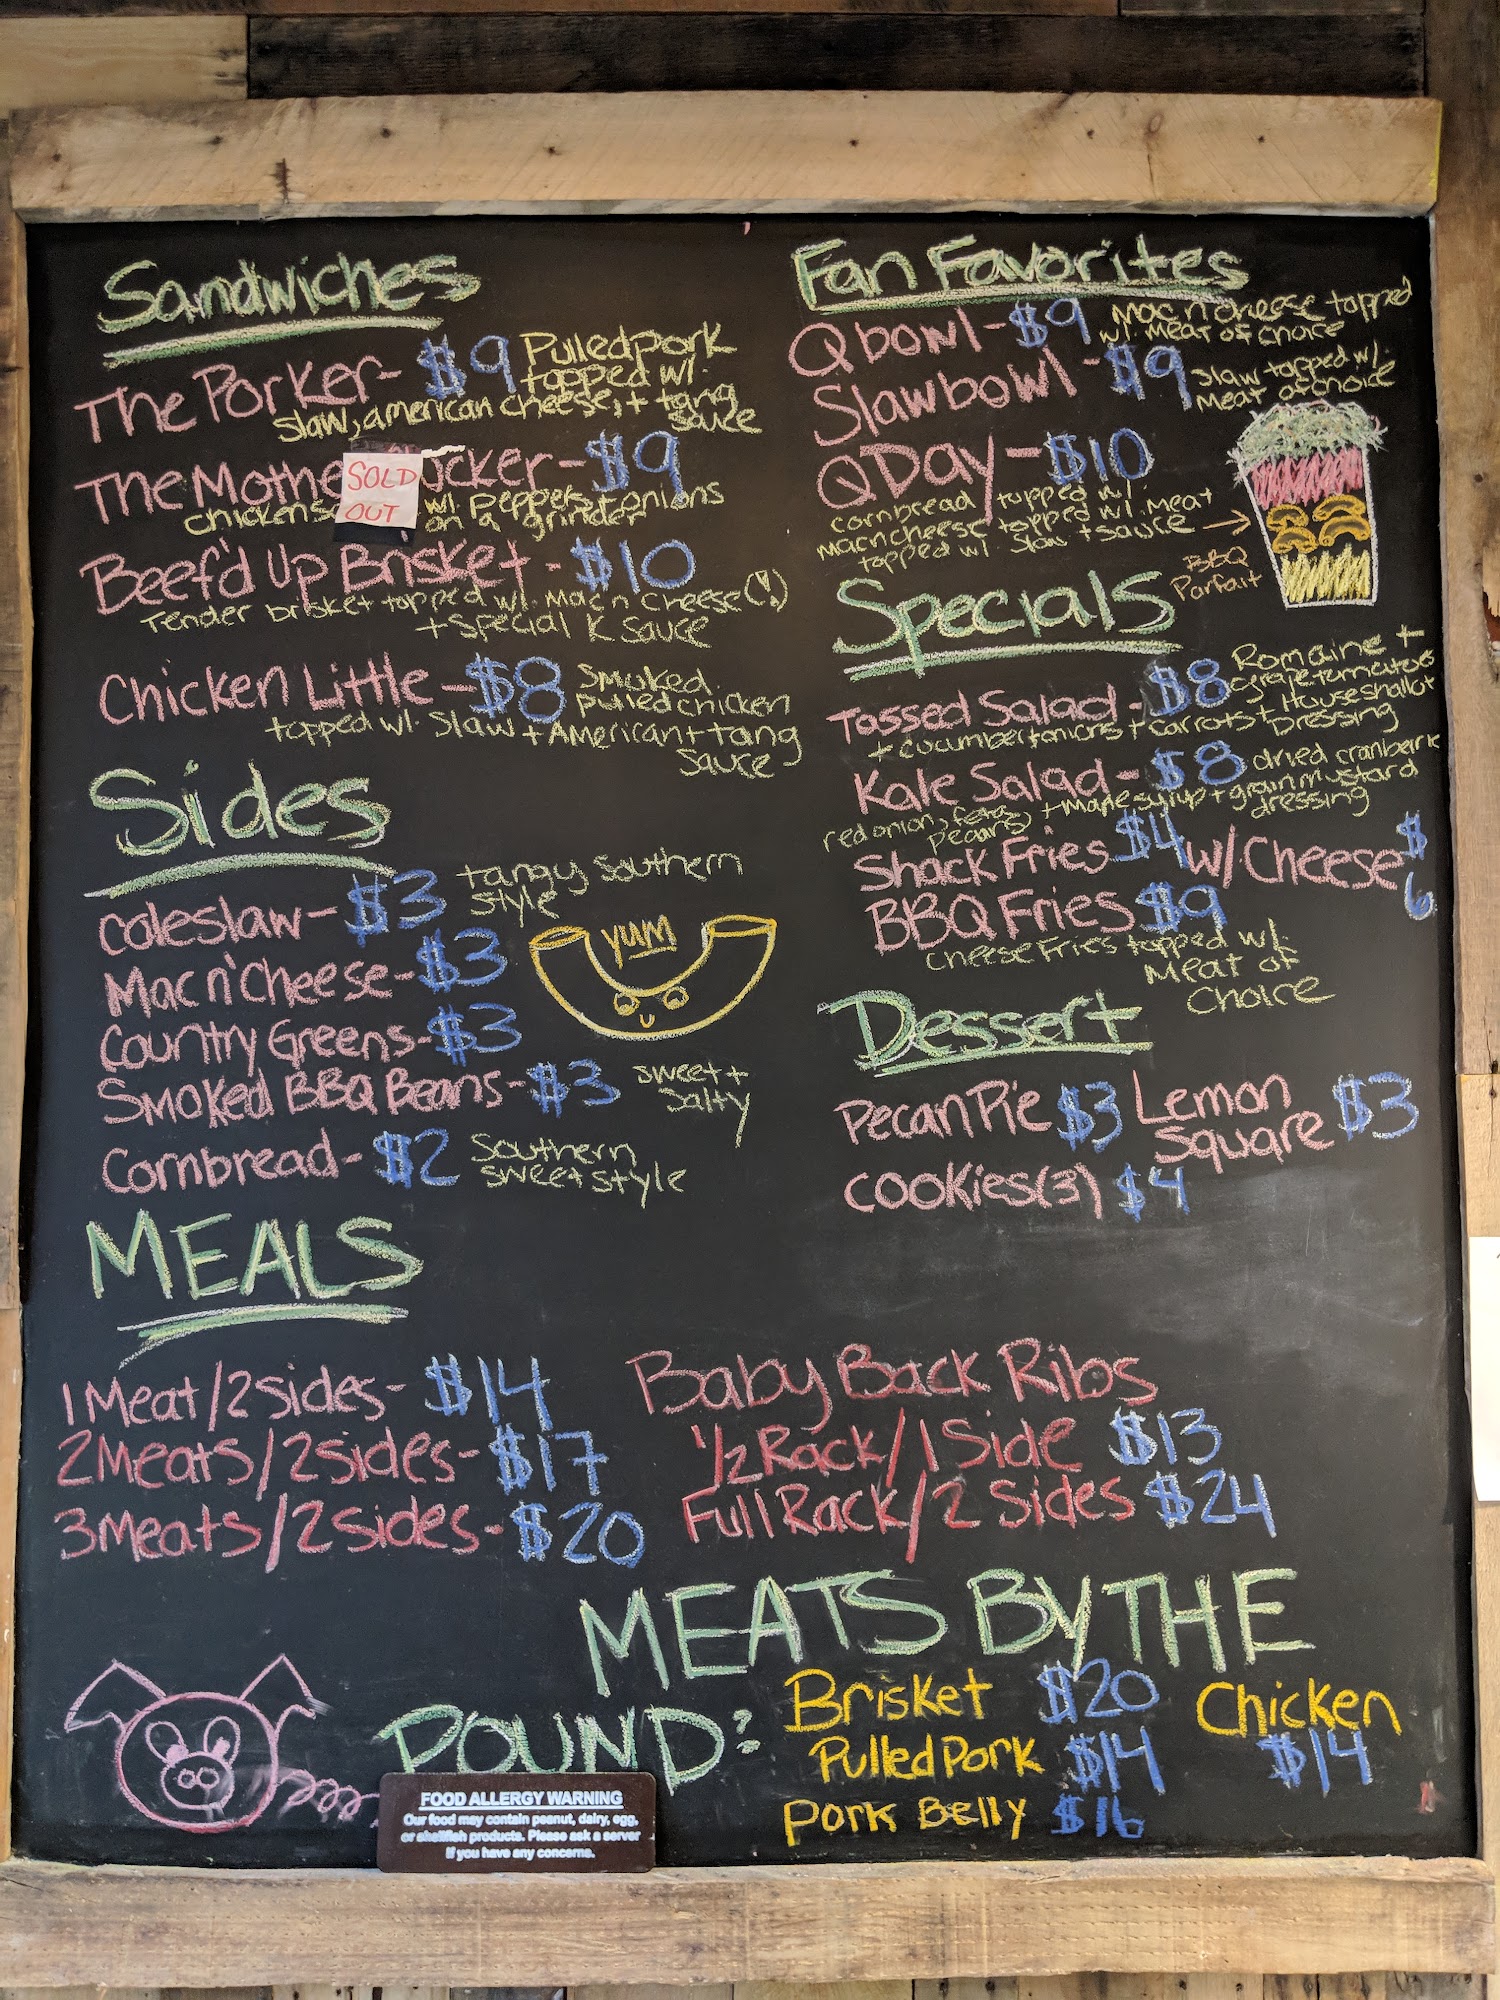 Sandwiches
The Porker- $9 Pulled pork
topped w/.
slaw, american cheese, + tang
sauce
The Mothe ucker- $9
SOLD
OUT
chicken s w/. peppers + onions
on a grinder
Beef'd Up Brisket- $10
Tender brisket topped w/. Mac n cheese (!)
+ special K sauce
Chicken Little- $8 Smoked
pulled chicken
topped w/. slaw + American + tang
sauce
Sides
coleslaw- $3 tangy southern
style
Mac n' Cheese- $3
yum
Country Greens- $3
Smoked BBQ Beans- $3 sweet +
salty
Cornbread- $2 Southern
sweet style
MEALS
1 Meat/2 sides- $14
2 Meats/2 sides- $17
3 Meats/2 sides- $20
Fan Favorites
Q bowl- $9 Mac n cheese topped
w/. meat of choice
Slawbowl- $9 Slaw topped w/.
Meat of choice
Q Day- $10
cornbread topped w/.
mac n cheese topped w/. Meat
topped w/. slaw + sauce
BBQ
Parfait
Specials
Tossed Salad- $8 Romaine +
grape tomatoes
+ cucumber + onions + carrots + House shallot
Dressing
Kale Salad- $8 dried cranberie
red onion, feta, + maple syrup + grain mustard
pecans dressing
Shack Fries $4 w/ Cheese $6
BBQ Fries $9
cheese Fries topped w/.
Meat of
Choice
Dessert
Pecan Pie $3 Lemon
Square $3
cookies (3) $4
Baby Back Ribs
1/2 Rack/1 Side $13
Full Rack/2 Sides $24
MEATS BY THE
POUND:
Brisket $20 Chicken
Pulled Pork $14 $14
Pork Belly $16
FOOD ALLERGY WARNING
Our food may contain peanut, dairy, egg,
or shellfish products. Please ask a server
if you have any concerns.